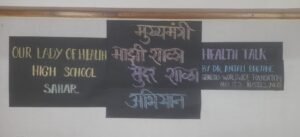 OUR LADY OF HEALTH
HIGH SCHOOL
SAHAR.
मुख्यमंत्री
माझी शाळा
सुंदर शाळा
अभियान
HEALTH TALK
BY DR.
WORLDWIDE FOUNDATION